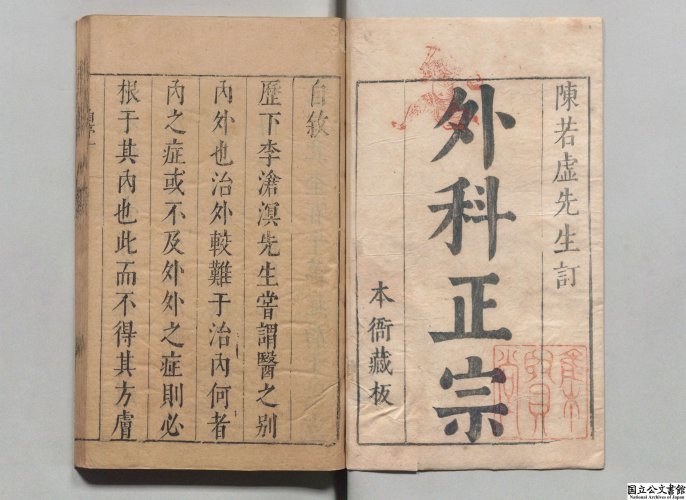 陳若虛先生訂
外科正宗
本衙藏板
自敘
歷下李滄溟先生嘗謂醫之别
內外也治外較難于治內何者
內之症或不及外外之症則必
根于其內也此而不得其方膚
国立公文書館
National Archives of Japan